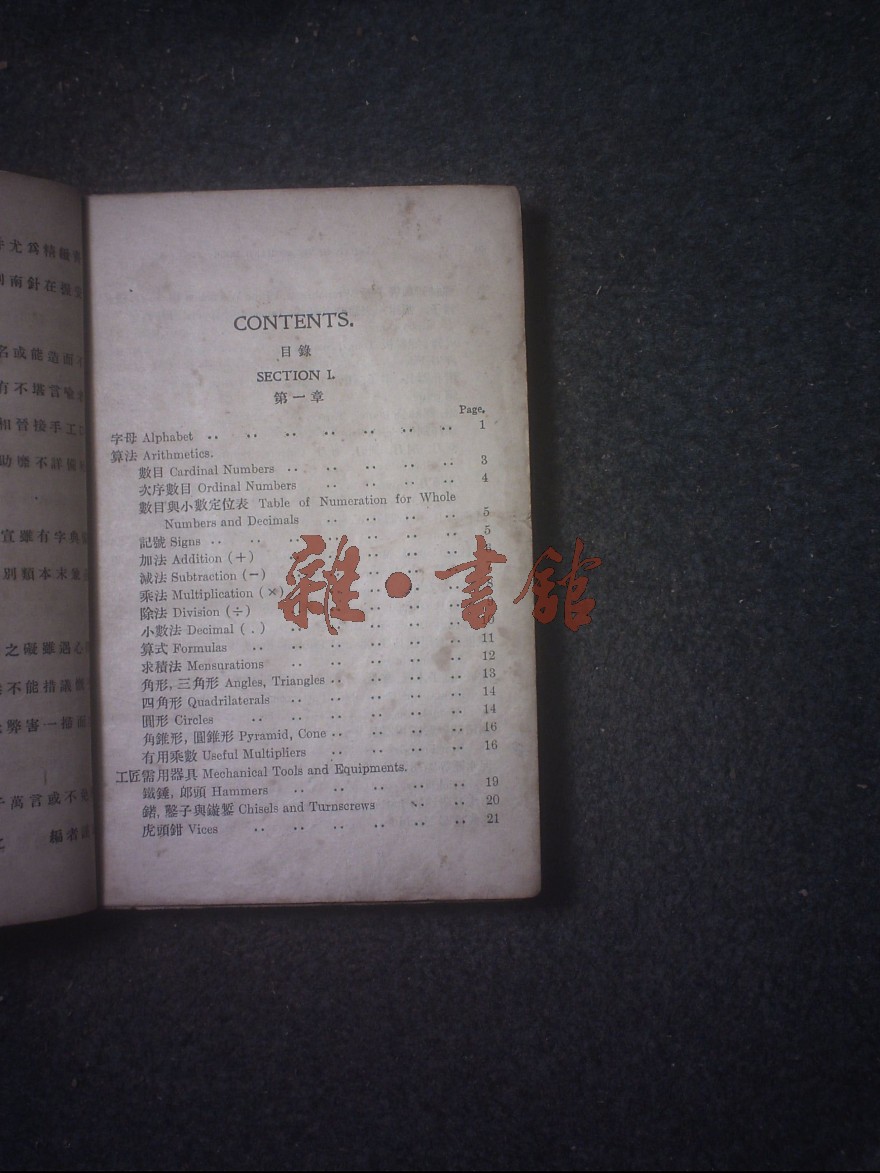 尤爲精緻
南針在握
名或能造而不
有不堪言喩
和晉接手工
助靡不詳備
宣雖有字典
別類本末並
之礙雖遇心
不能措議
弊害一掃而
萬言或不
編者識
CONTENTS.
目錄
SECTION I.
第一章
Page.
字母 Alphabet .. .. .. .. .. .. .. 1
算法 Arithmetics.
數目 Cardinal Numbers .. .. .. .. .. 3
次序數目 Ordinal Numbers .. .. .. .. 4
數目與小數定位表 Table of Numeration for Whole
Numbers and Decimals .. .. .. .. 5
記號 Signs .. .. .. .. .. .. .. 5
加法 Addition (+)
減法 Subtraction (−)
乘法 Multiplication (×)
除法 Division (÷)
小數法 Decimal ( . ) .. .. .. .. .. 10
算式 Formulas .. .. .. .. .. .. 11
求積法 Mensurations .. .. .. .. .. 12
角形, 三角形 Angles, Triangles .. .. .. .. 13
四角形 Quadrilaterals .. .. .. .. .. 14
圓形 Circles .. .. .. .. .. .. 14
角錐形, 圓錐形 Pyramid, Cone .. .. .. .. 16
有用乘數 Useful Multipliers .. .. .. .. 16
工匠需用器具 Mechanical Tools and Equipments.
鐵錘, 郎頭 Hammers .. .. .. .. .. 19
鍺, 鑿子與鏇鏨 Chisels and Turnscrews .. .. .. 20
虎頭鉗 Vices .. .. .. .. .. .. 21
雜·書館